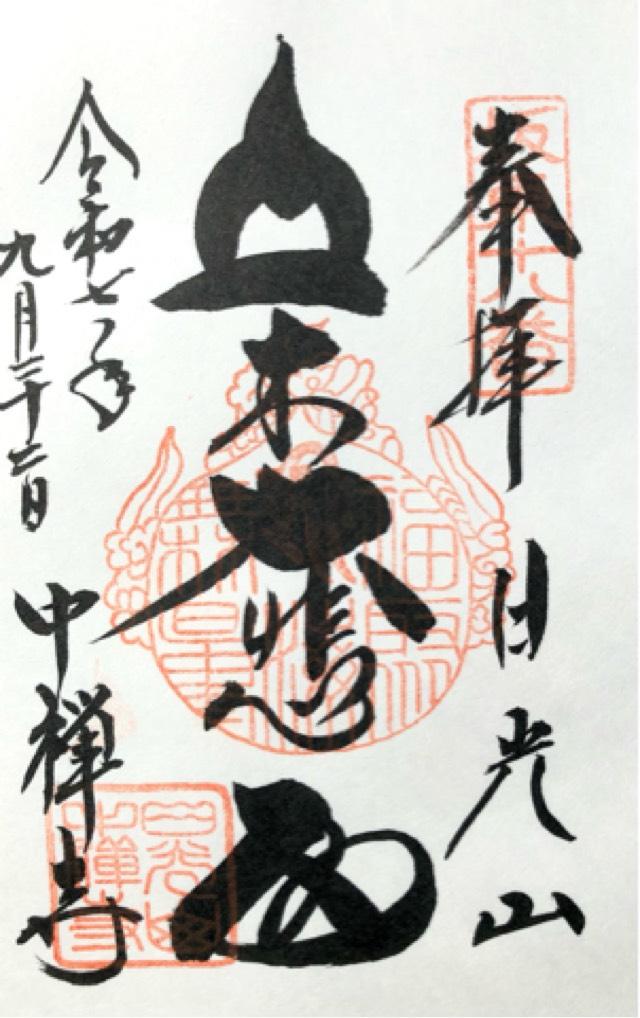 坂東十八番
奉拝 日光山
立木大悲
令和七年
九月二十六日
中禅寺
日光山
中禅寺